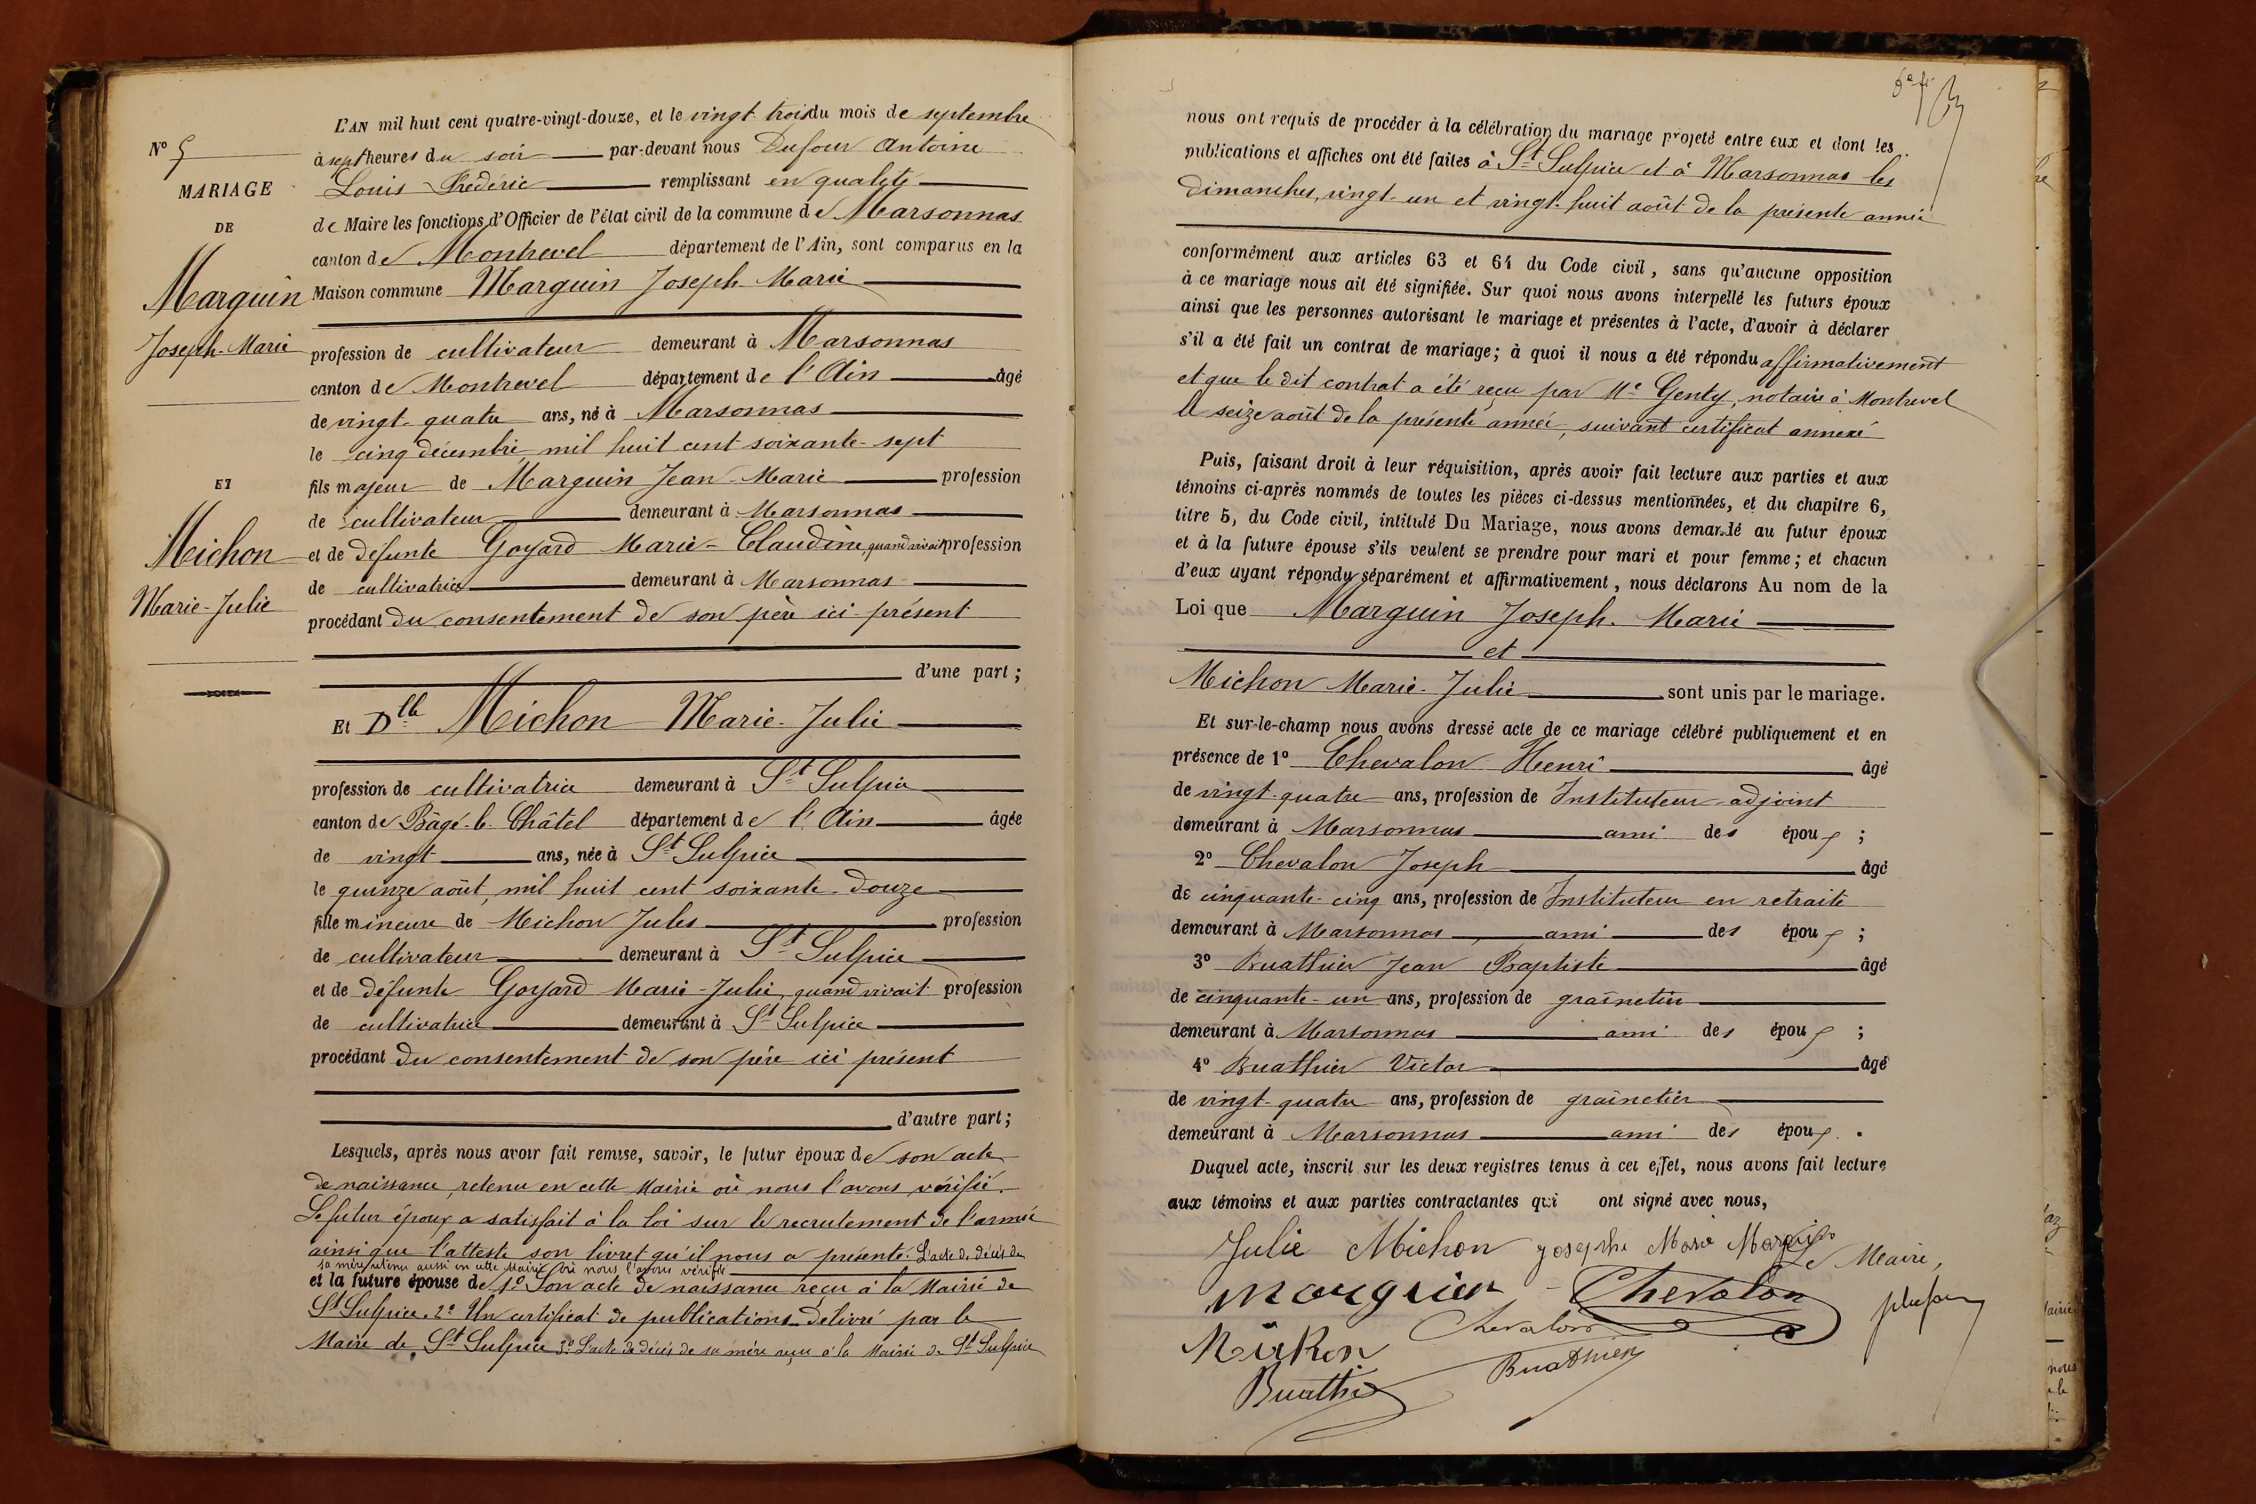 L'AN mil huit cent quatre-vingt-douze, et le vingt trois du mois de septembre
N° 5
à sept heures du soir par-devant nous Dufour Antoine
MARIAGE
Louis Frédéric remplissant en qualité
DE
de Maire les fonctions d'Officier de l'état civil de la commune de Marsonnas
canton de Montrevel département de l'Ain, sont comparus en la
Marguin
Maison commune Marguin Joseph-Marie
Joseph-Marie
profession de cultivateur demeurant à Marsonnas
canton de Montrevel département de l'Ain âgé
de vingt-quatre ans, né à Marsonnas
le cinq décembre, mil huit cent soixante-sept
ET
fils majeur de Marguin Jean-Marie profession
de cultivateur demeurant à Marsonnas
Michon
et de défunte Goyard Marie-Claudine, quand vivait profession
de cultivatrice demeurant à Marsonnas
Marie-Julie
procédant du consentement de son père ici présent
d'une part;
Et Dlle Michon Marie-Julie
profession de cultivatrice demeurant à St Sulpice
canton de Bâgé-le-Châtel département de l'Ain âgée
de vingt ans, née à St Sulpice
le quinze août, mil huit cent soixante-douze
fille mineure de Michon Jules profession
de cultivateur demeurant à St Sulpice
et de défunte Goyard Marie-Julie, quand vivait profession
de cultivatrice demeurant à St Sulpice
procédant du consentement de son père ici présent
d'autre part;
Lesquels, après nous avoir fait remise, savoir, le futur époux de son acte
de naissance, retenu en cette Mairie où nous l'avons vérifié.
Le futur époux a satisfait à la loi sur le recrutement de l'armée
ainsi que l'atteste son livret qu'il nous a présenté. L'acte de décès de
sa mère retenu aussi en cette Mairie où nous l'avons vérifié
et la future épouse de 1° Son acte de naissance reçu à la Mairie de
St Sulpice. 2° Un certificat de publications délivré par le
Maire de St Sulpice 3° L'acte de décès de sa mère reçu à la Mairie de St Sulpice
nous ont requis de procéder à la célébration du mariage projeté entre eux et dont les
publications et affiches ont été faites à St Sulpice et à Marsonnas les
dimanches, vingt-un et vingt-huit août de la présente année
conformément aux articles 63 et 64 du Code civil, sans qu'aucune opposition
à ce mariage nous ait été signifiée. Sur quoi nous avons interpellé les futurs époux
ainsi que les personnes autorisant le mariage et présentes à l'acte, d'avoir à déclarer
s'il a été fait un contrat de mariage; à quoi il nous a été répondu affirmativement
et que le dit contrat a été reçu par Me Genty, notaire à Montrevel
le seize août de la présente année, suivant certificat annexé
Puis, faisant droit à leur réquisition, après avoir fait lecture aux parties et aux
témoins ci-après nommés de toutes les pièces ci-dessus mentionnées, et du chapitre 6,
titre 5, du Code civil, intitulé Du Mariage, nous avons demandé au futur époux
et à la future épouse s'ils veulent se prendre pour mari et pour femme; et chacun
d'eux ayant répondu séparément et affirmativement, nous déclarons Au nom de la
Loi que Marguin Joseph-Marie
et
Michon Marie-Julie sont unis par le mariage.
Et sur-le-champ nous avons dressé acte de ce mariage célébré publiquement et en
présence de 1° Chevalon Henri âgé
de vingt-quatre ans, profession de Instituteur-adjoint
demeurant à Marsonnas ami des époux ;
2° Chevalon Joseph âgé
de cinquante-cinq ans, profession de Instituteur en retraite
demeurant à Marsonnas ami des époux ;
3° Buathier Jean Baptiste âgé
de cinquante-un ans, profession de grainetier
demeurant à Marsonnas ami des époux ;
4° Buathier Victor âgé
de vingt-quatre ans, profession de grainetier
demeurant à Marsonnas ami des époux .
Duquel acte, inscrit sur les deux registres tenus à cet effet, nous avons fait lecture
aux témoins et aux parties contractantes qui ont signé avec nous,
Julie Michon Josephe Marie Marguin
Le Maire,
Marguin Chevalon
Chevalon
Michon
Buathier
Buathier